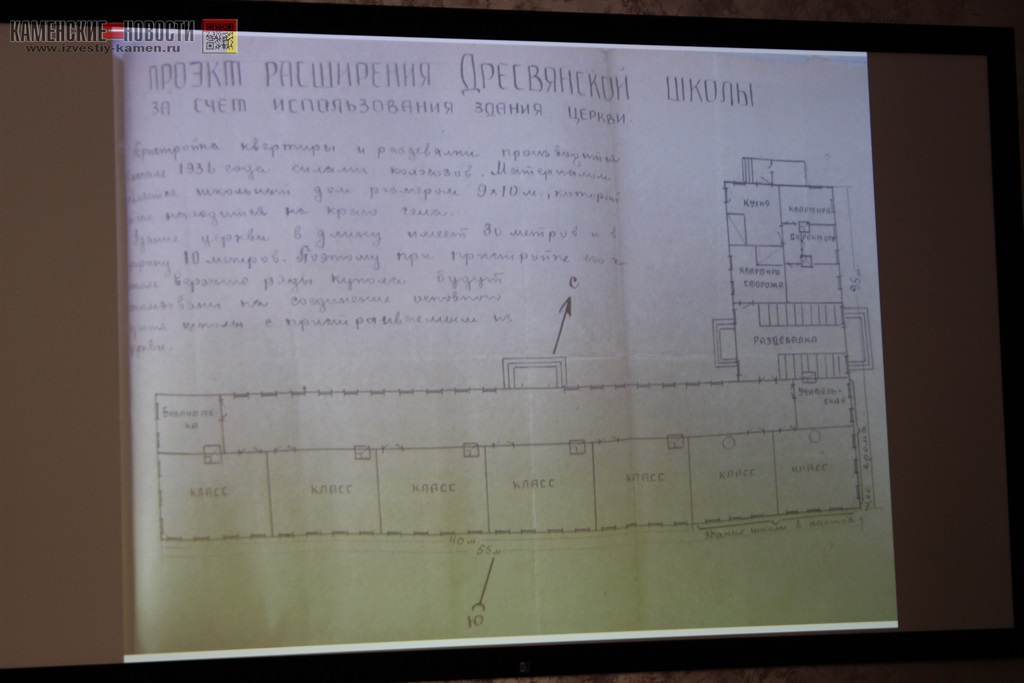 КАМЕНСКИЕ НОВОСТИ
www.izvestiy-kamen.ru
ПРОЭКТ РАСШИРЕНИЯ ДРЕСВЯНСКОЙ ШКОЛЫ
ЗА СЧЕТ ИСПОЛЬЗОВАНИЯ ЗДАНИЯ ЦЕРКВИ.
Пристройка квартиры и раздевалки производится
1936 года силами колхозов. Материалом
школьный дом размером 9х10 м., который
находится на краю села.
Здание церкви в длину имеет 30 метров и в
10 метров. Поэтому при пристройке его
ряды купола будут
на соединение основного
школы с пристраиваемым из
С
КУХНЯ
КВАРТИРА
ДИРЕКТОРА
КВАРТИРА
СТОРОЖА
РАЗДЕВАЛКА
БИБЛИОТЕ
КА
УЧИТЕЛЬ
СКАЯ
КЛАСС
КЛАСС
КЛАСС
КЛАСС
КЛАСС
КЛАСС
КЛАСС
40 м.
55 м.
Здание школы в
Ю